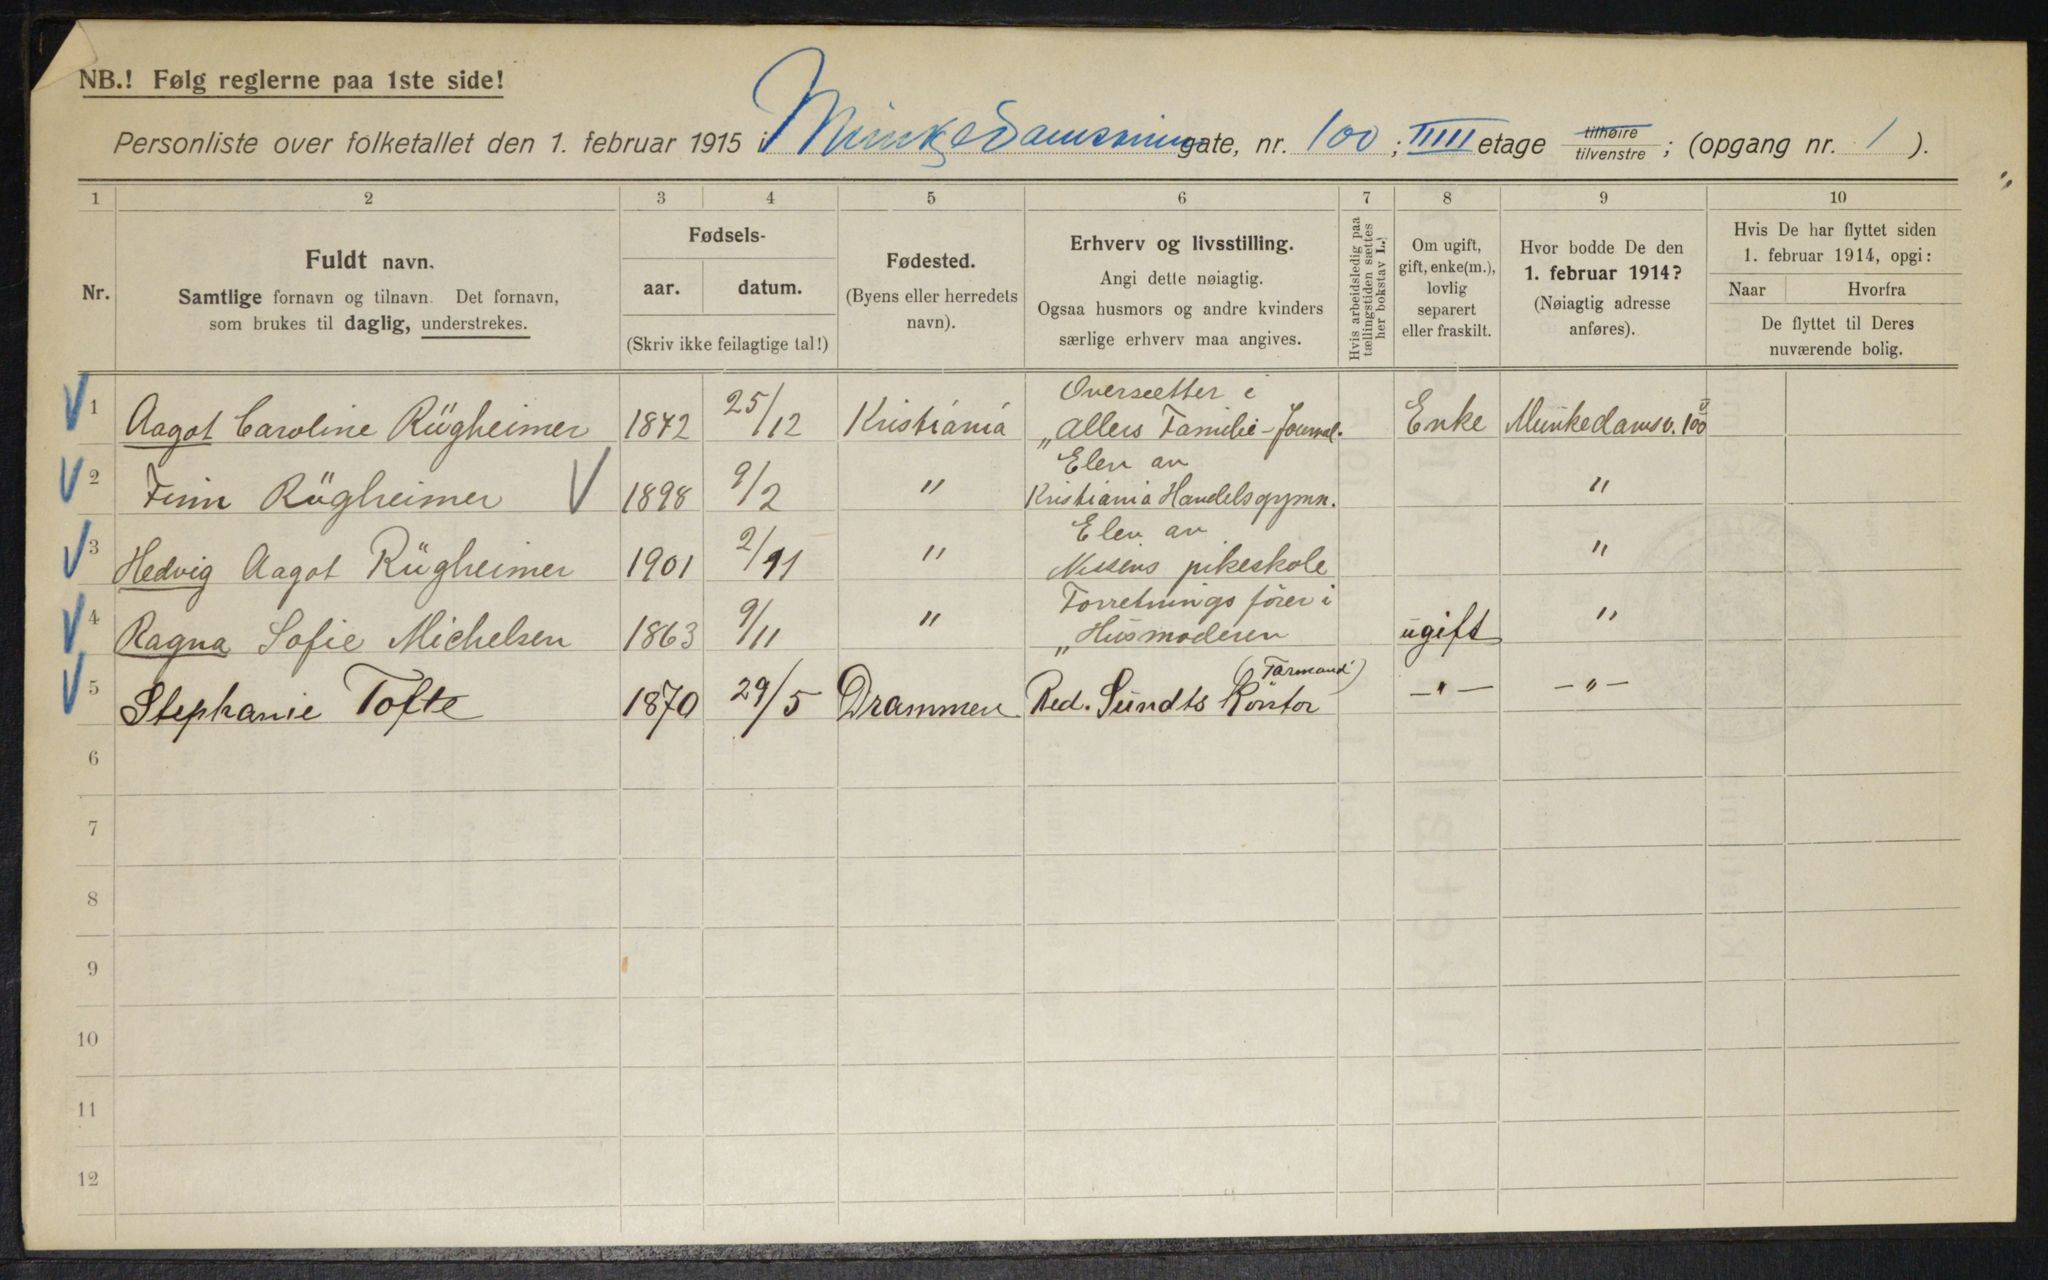 NB.! Følg reglerne paa 1ste side!
Personliste over folketallet den 1. februar 1915 i Munkedamsveien gate, nr. 100; IIIII etage tilhøire tilvenstre; (opgang nr. 1).
1 2 3 4 5 6 7 8 9 10
Nr.
Fuldt navn.
Samtlige fornavn og tilnavn. Det fornavn,
som brukes til daglig, understrekes.
Fødsels-
aar. datum.
(Skriv ikke feilagtige tal!)
Fødested.
(Byens eller herredets
navn).
Erhverv og livsstilling.
Angi dette nøiagtig.
Ogsaa husmors og andre kvinders
særlige erhverv maa angives.
Hvis arbeidsledig paa
tællingstiden sættes
her bokstav L.
Om ugift,
gift, enke(m.),
lovlig
separert
eller fraskilt.
Hvor bodde De den
1. februar 1914?
(Nøiagtig adresse
anføres).
Hvis De har flyttet siden
1. februar 1914, opgi:
Naar Hvorfra
De flyttet til Deres
nuværende bolig.
1 Aagot Caroline Rügheimer 1872 25/12 Kristiania Oversætter i „Allers Familie-Journal. Enke Munkedamsv. 100 V
2 Finn Rügheimer 1898 9/2 " Elev av Kristiania Handelsgymn. "
3 Hedvig Aagot Rügheimer 1901 2/11 " Elev av Nissens pikeskole "
4 Ragna Sofie Michelsen 1863 9/11 " Forretningsfører i „Husmoderen ugift "
5 Stephanie Tofte 1870 29/5 Drammen Red. Sundts Kontor (Farmand) —"— —"—
6
7
8
9
10
11
12